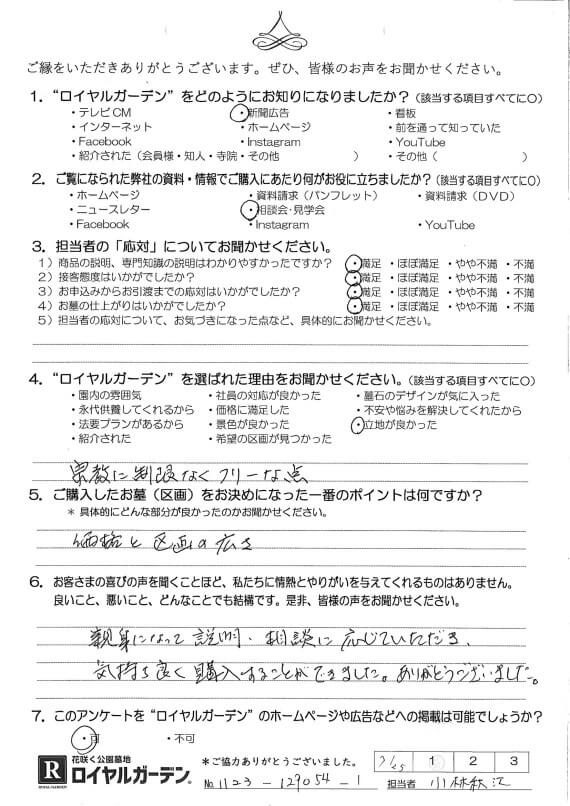 ご縁をいただきありがとうございます。ぜひ、皆様のお声をお聞かせください。
1. “ロイヤルガーデン” をどのようにお知りになりましたか？（該当する項目すべてに○）
・テレビCM ・新聞広告 ・看板
・インターネット ・ホームページ ・前を通って知っていた
・Facebook ・Instagram ・YouTube
・紹介された（会員様・知人・寺院・その他 ） ・その他（ ）
2. ご覧になられた弊社の資料・情報でご購入にあたり何がお役に立ちましたか？（該当する項目すべてに○）
・ホームページ ・資料請求（パンフレット） ・資料請求（DVD）
・ニュースレター ・相談会・見学会
・Facebook ・Instagram ・YouTube
3. 担当者の「応対」についてお聞かせください。
1）商品の説明、専門知識の説明はわかりやすかったですか？ ・満足 ・ほぼ満足 ・やや不満 ・不満
2）接客態度はいかがでしたか？ ・満足 ・ほぼ満足 ・やや不満 ・不満
3）お申込みからお引渡までの応対はいかがでしたか？ ・満足 ・ほぼ満足 ・やや不満 ・不満
4）お墓の仕上がりはいかがでしたか？ ・満足 ・ほぼ満足 ・やや不満 ・不満
5）担当者の応対について、お気づきになった点など、具体的にお聞かせください。
4. “ロイヤルガーデン” を選ばれた理由をお聞かせください。（該当する項目すべてに○）
・園内の雰囲気 ・社員の対応が良かった ・墓石のデザインが気に入った
・永代供養してくれるから ・価格に満足した ・不安や悩みを解決してくれたから
・法要プランがあるから ・景色が良かった ・立地が良かった
・紹介された ・希望の区画が見つかった
宗教に制限なくフリーな点
5. ご購入したお墓（区画）をお決めになった一番のポイントは何ですか？
＊具体的にどんな部分が良かったのかお聞かせください。
価格と区画の広さ
6. お客さまの喜びの声を聞くことほど、私たちに情熱とやりがいを与えてくれるものはありません。
良いこと、悪いこと、どんなことでも結構です。是非、皆様の声をお聞かせください。
親身になって説明・相談に応じていただき、
気持ち良く購入することができました。ありがとうございました。
7. このアンケートを “ロイヤルガーデン” のホームページや広告などへの掲載は可能でしょうか？
・可 ・不可
R ROYAL GARDEN
花咲く公園墓地
ロイヤルガーデン®
＊ご協力ありがとうございました。
No. 1123-129054-1
1 2 3
担当者 小林秋江